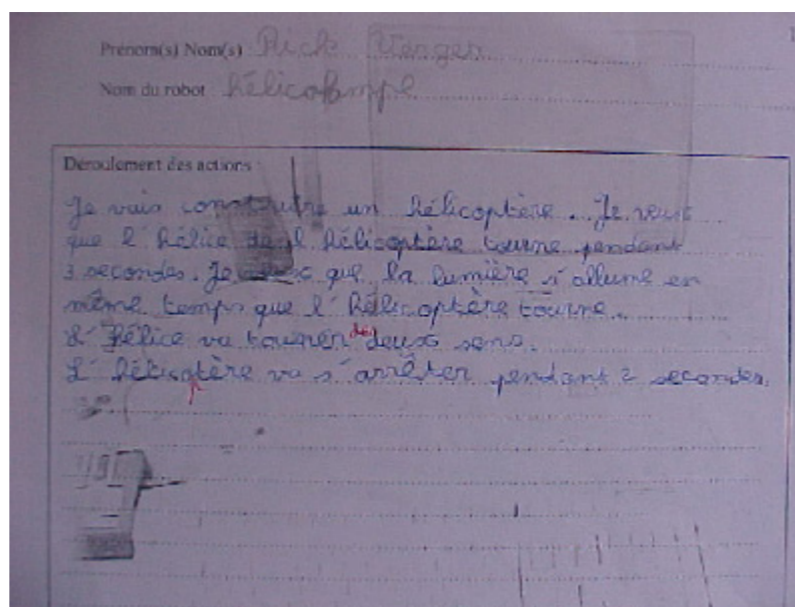 Prénom(s) Nom(s) : Rick
Nom du robot
Déroulement des actions :
Je vais construire un hélicoptère. Je veux
que l'hélice de l'hélicoptère tourne pendant
3 secondes. Je veux que la lumière s'allume en
même temps que l'hélicoptère tourne.
L'hélice va tourner des deux sens.
L'hélicoptère va s'arrêter pendant 2 secondes.